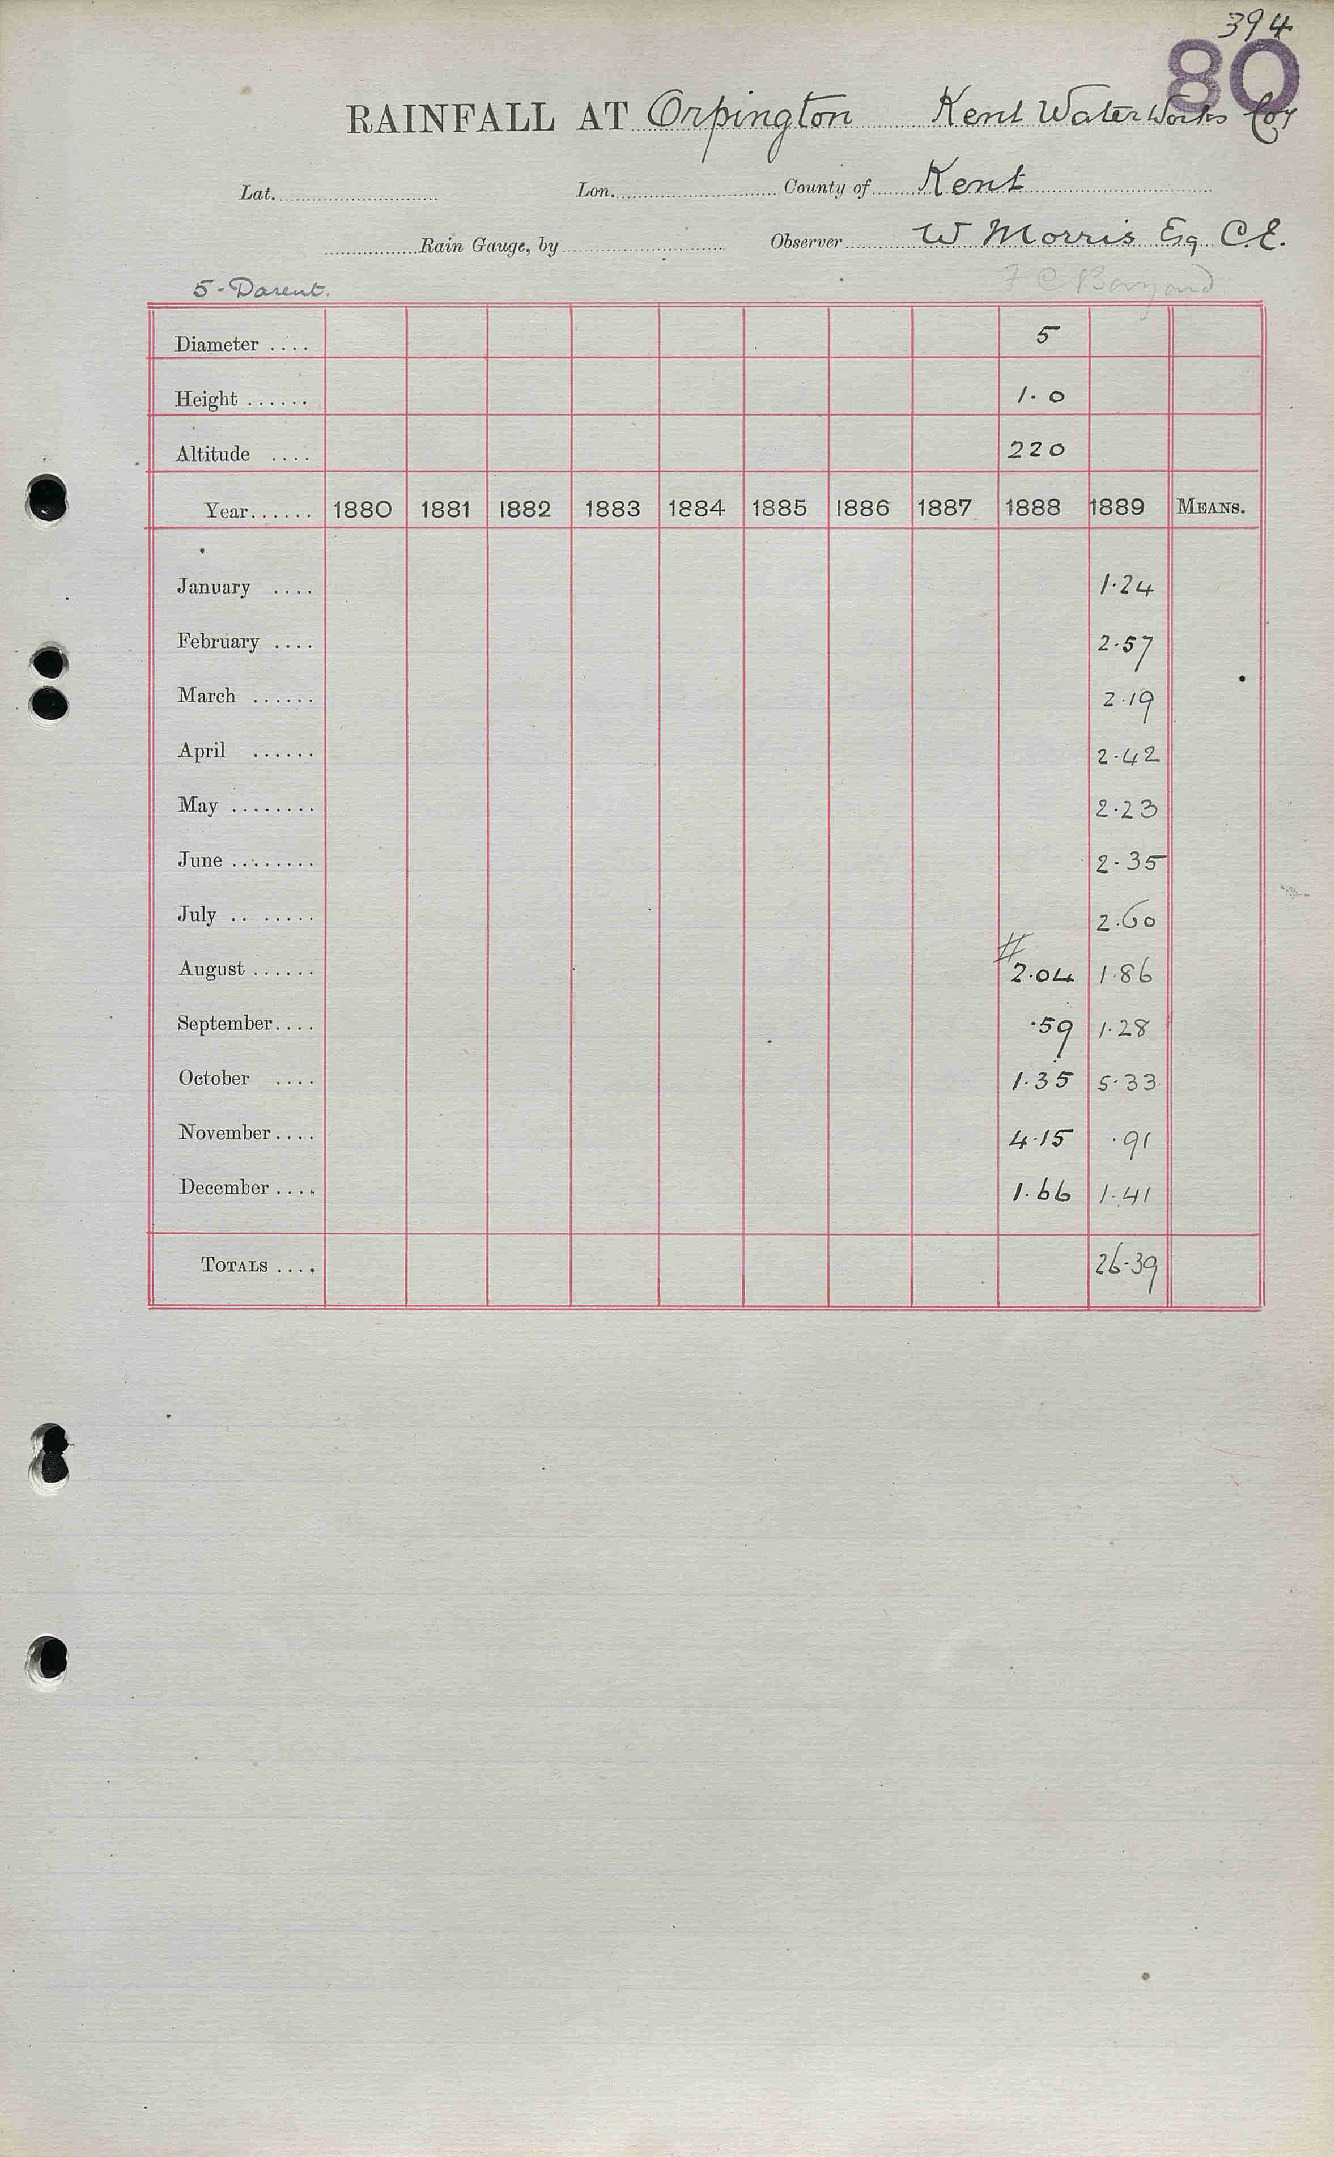 394
80
RAINFALL AT Orpington Kent Water Works Coy
Lat. Lon. County of Kent
Rain Gauge, by Observer W Morris Esq C.E.
5-Darent. F C
Diameter .... 5
Height ...... 1.0
Altitude .... 220
Year...... 1880 1881 1882 1883 1884 1885 1886 1887 1888 1889 MEANS.
January .... 1.24
February .... 2.57
March ...... 2.19
April ...... 2.42
May ........ 2.23
June ........ 2.35
July .. ...... 2.60
#
August ...... 2.04 1.86
September.... .59 1.28
October .... 1.35 5.33
November.... 4.15 .91
December .... 1.66 1.41
TOTALS .... 26.39